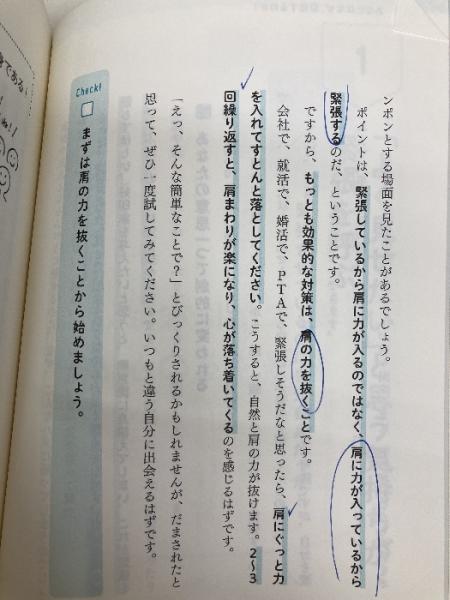 ンポンとする場面を見たことがあるでしょう。
ポイントは、緊張しているから肩に力が入るのではなく、肩に力が入っているから
緊張するのだ、ということです。
ですから、もっとも効果的な対策は、肩の力を抜くことです。
会社で、就活で、婚活で、PTAで、緊張しそうだなと思ったら、肩にぐっと力
を入れてすとんと落としてください。こうすると、自然と肩の力が抜けます。2〜3
回繰り返すと、肩まわりが楽になり、心が落ち着いてくるのを感じるはずです。
「えっ、そんな簡単なことで？」とびっくりされるかもしれませんが、だまされたと
思って、ぜひ一度試してみてください。いつもと違う自分に出会えるはずです。
Check!
まずは肩の力を抜くことから始めましょう。
である!